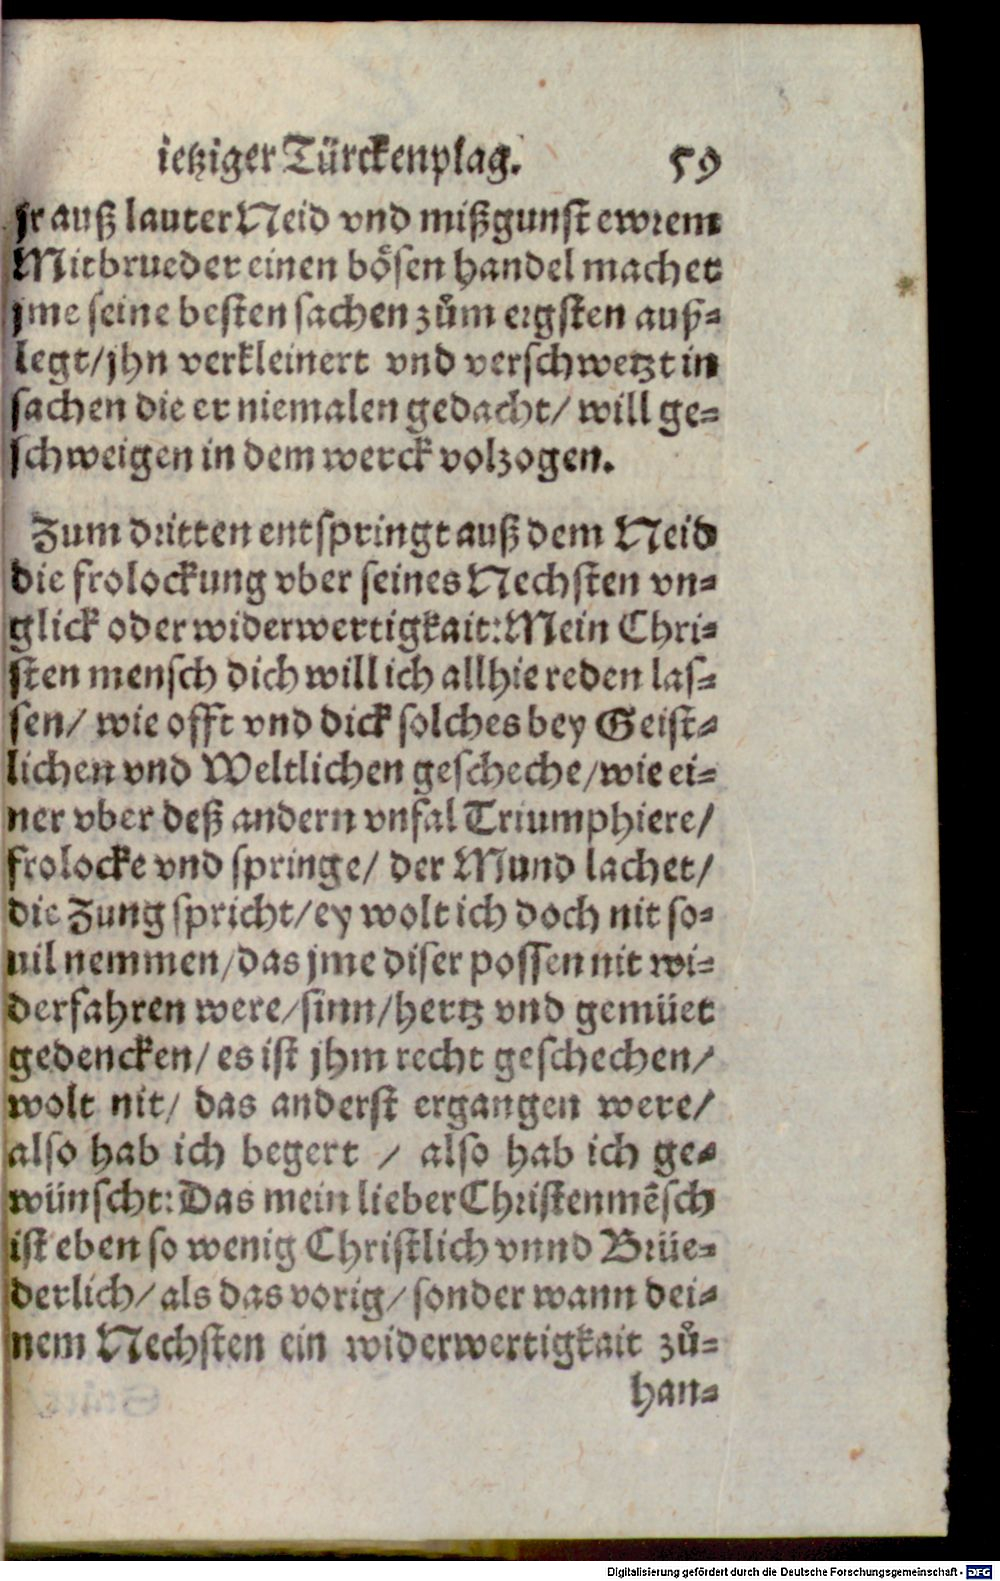 ietziger Türckenplag. 59
jr auß lauter Neid vnd mißgunst ewrem
Mitbrueder einen bösen handel machet
jme seine besten sachen zům ergsten auß-
legt/ jhn verkleinert vnd verschwetzt in
sachen die er niemalen gedacht/ will ge-
schweigen in dem werck volzogen.
Zum dritten entspringt auß dem Neid
die frolockung vber seines Nechsten vn-
glick oder widerwertigkait: Mein Chri-
sten mensch dich will ich allhie reden las-
sen/ wie offt vnd dick solches bey Geist-
lichen vnd Weltlichen gescheche/ wie ei-
ner vber deß andern vnfal Triumphiere/
frolocke vnd springe/ der Mund lachet/
die Zung spricht/ ey wolt ich doch nit so-
uil nemmen/ das jme diser possen nit wi-
derfahren were/ sinn/ hertz vnd gemüet
gedencken/ es ist jhm recht geschechen/
wolt nit/ das anderst ergangen were/
also hab ich begert / also hab ich ge-
wünscht: Das mein lieber Christenmēsch
ist eben so wenig Christlich vnnd Brüe-
derlich/ als das vorig/ sonder wann dei-
nem Nechsten ein widerwertigkait zů-
han-
Digitalisierung gefördert durch die Deutsche Forschungsgemeinschaft - DFG